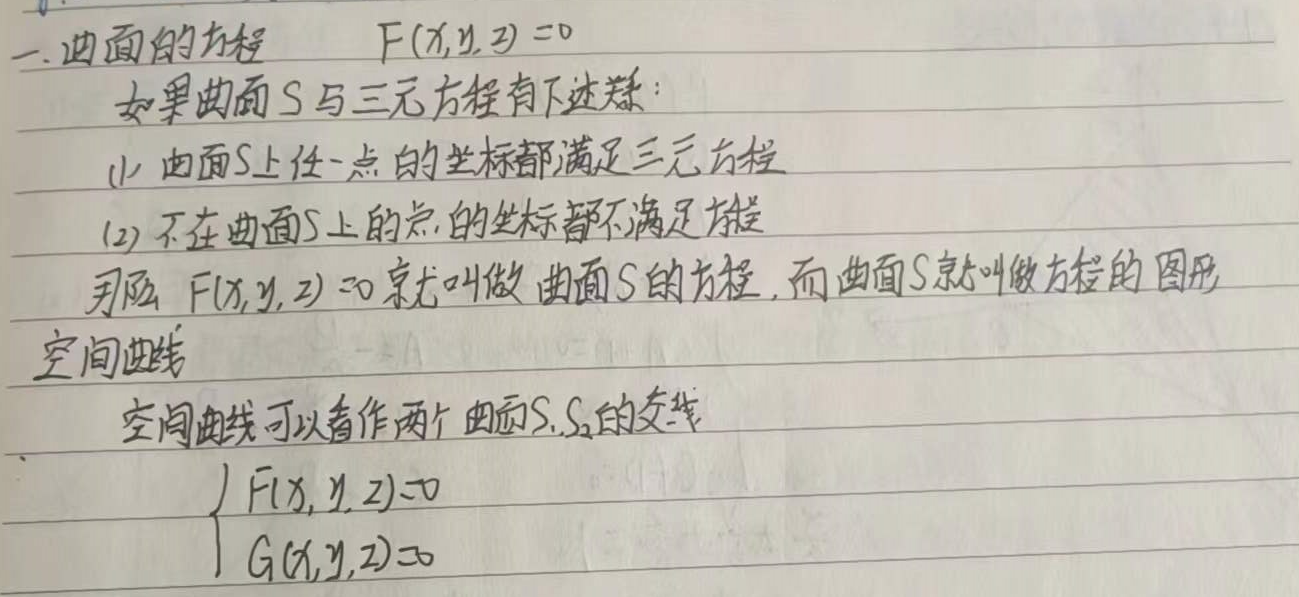 一.曲面的方程 F(x,y,z)=0
如果曲面S与三元方程有下述关系:
(1) 曲面S上任一点的坐标都满足三元方程
(2) 不在曲面S上的点的坐标都不满足方程
那么 F(x,y,z)=0就叫做曲面S的方程,而曲面S就叫做方程的图形
空间曲线
空间曲线可以看作两个曲面S₁,S₂的交线
{ F(x,y,z)=0
G(x,y,z)=0